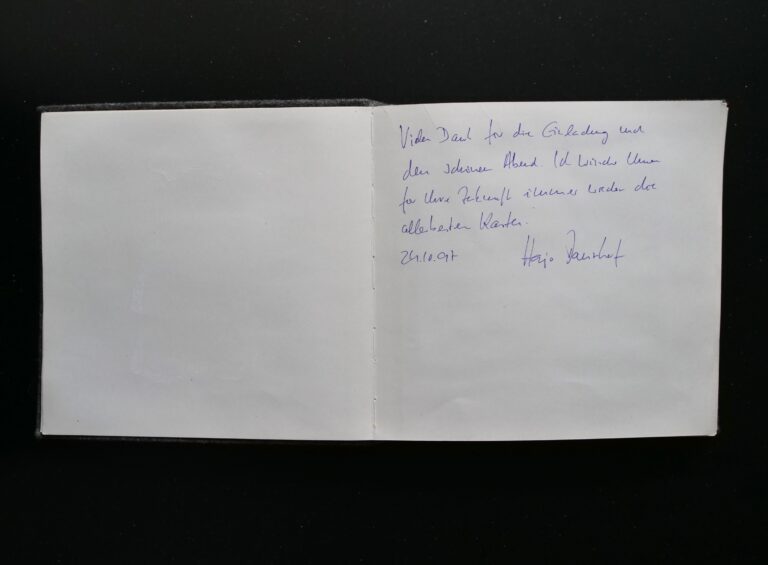 Vielen Dank für die Einladung und
den schönen Abend. Ich wünsche Ihnen
für Ihre Zukunft immer wieder die
allerbesten Karten.
24.10.97 Hajo